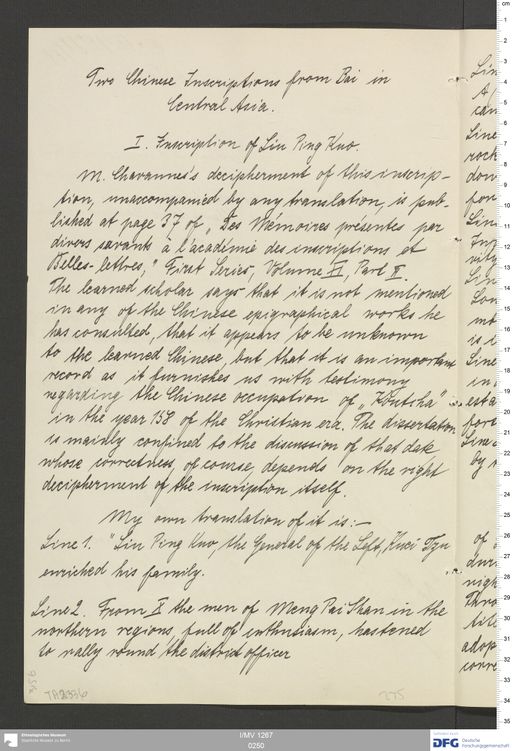 Two Chinese Inscriptions from Bai in
Central Asia.
I. Inscription of Liu Ping Kuo.
M. Chavannes's decipherment of this inscrip-
tion, unaccompanied by any translation, is pub-
lished at page 37 of „Des Mémoires présentés par
divers savants à l'académie des inscriptions et
Belles-lettres," First Series, Volume XI, Part II.
The learned scholar says that it is not mentioned
in any of the Chinese epigraphical works he
has consulted, that it appears to be unknown
to the learned Chinese, but that it is an important
record as it furnishes us with testimony
regarding the Chinese occupation of „Koutcha"
in the year 158 of the Christian era. The dissertation
is mainly confined to the discussion of that date
whose correctness, of course, depends on the right
decipherment of the inscription itself.
My own translation of it is:—
Line 1. "Liu Ping Kuo, the General of the Left, Kuci Tzu
enriched his family.
Line 2. From X the men of Meng Pai Shan in the
northern regions, full of enthusiasm, hastened
to rally round the district officer
TA 2336
275
Lin
can
Line
rock
don
Line
vity
Lin
is i
Line
in
esta
fort
Line
by
of
dur
nigh
Thro
adop
corre
Ethnologisches Museum
Staatliche Museen zu Berlin
I/MV 1267
0250
DFG
Deutsche
Forschungsgemeinschaft
cm
1
2
3
4
5
6
7
8
9
10
11
12
13
14
15
16
17
18
19
20
21
22
23
24
25
26
27
28
29
30
31
32
33
34
35